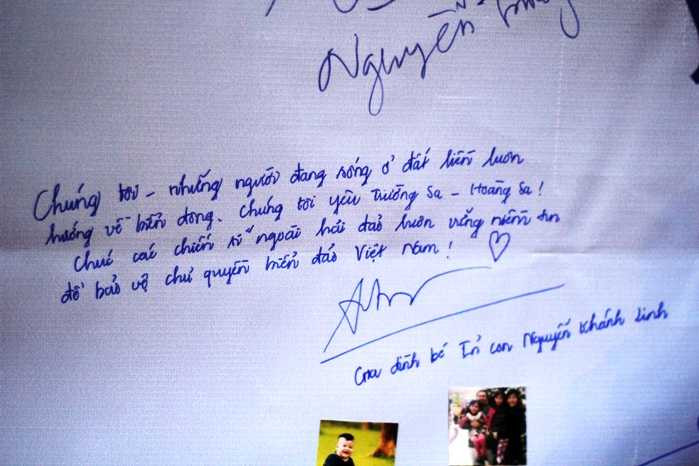 Nguyễn
Chúng tôi - những người đang sống ở đất liền luôn
hướng về biển đông. Chúng tôi yêu Trường Sa - Hoàng Sa!
Chúc các chiến sĩ ngoài hải đảo luôn vững niềm tin
để bảo vệ chủ quyền biển đảo Việt Nam!
Gia đình bé Tỉ con Nguyễn Khánh Linh